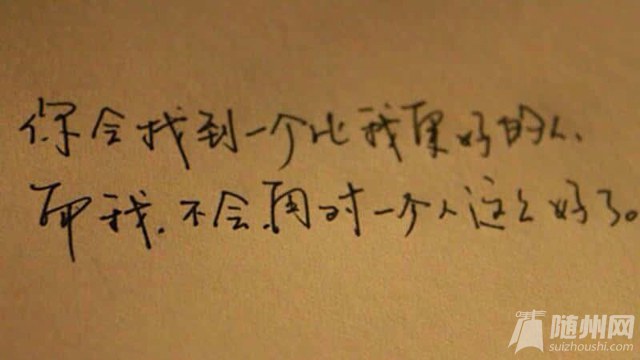 你会找到一个比我更好的人、
而我.不会再对一个人这么好了。
随州网
suizhoushi.com